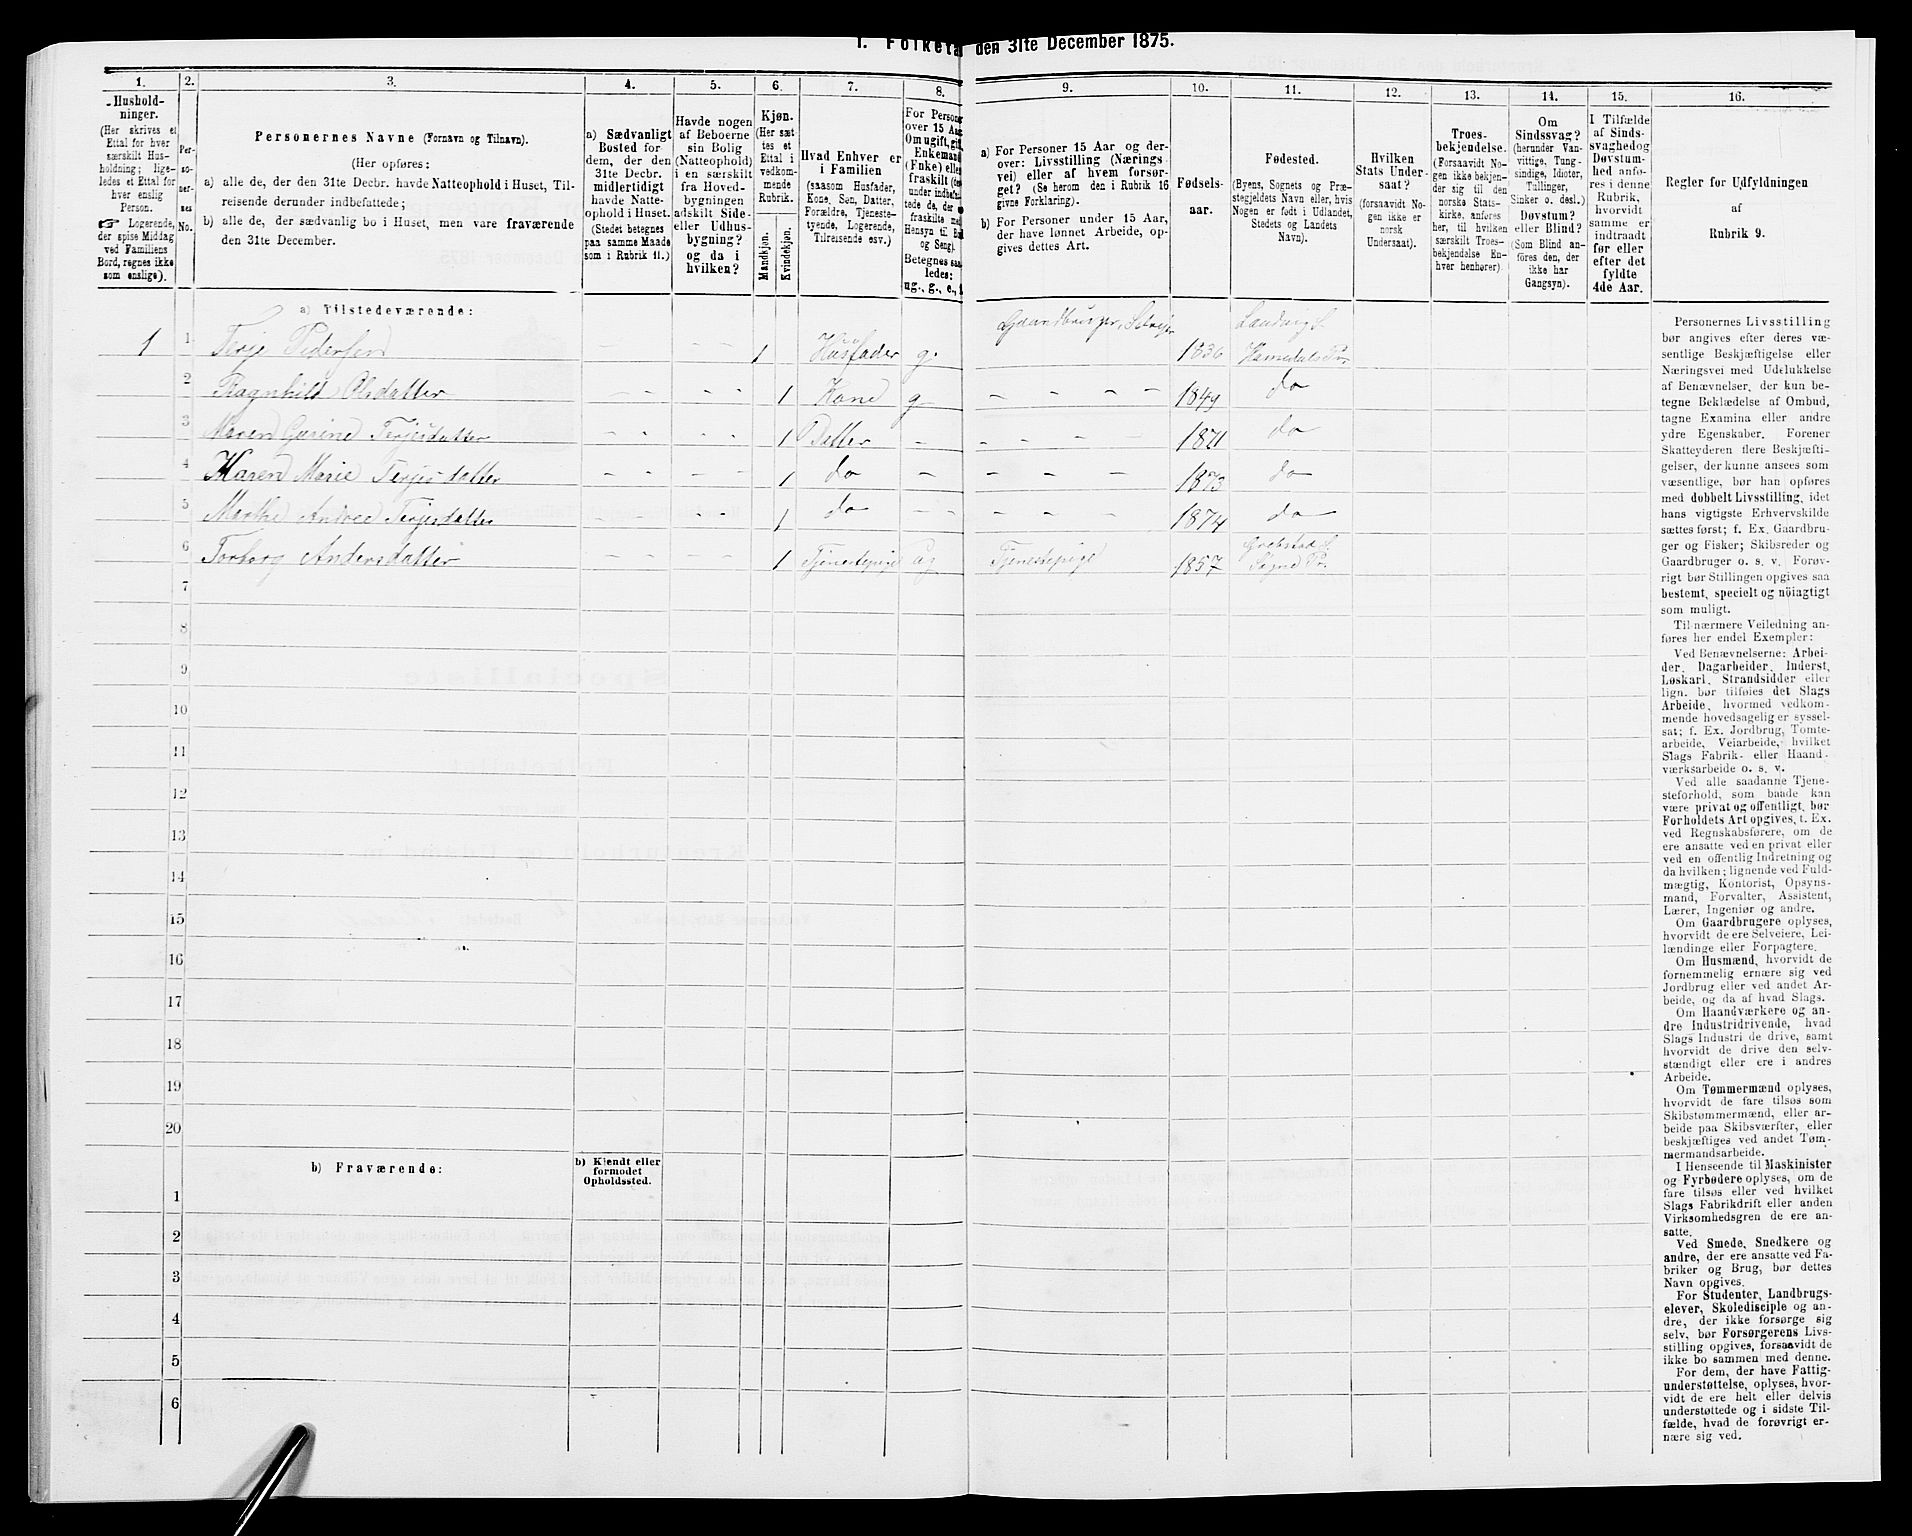 I. Folketal den 31te December 1875.
1. 2. 3. 4. 5. 6. 7. 8. 9. 10. 11. 12. 13. 14. 15. 16.
Husholdninger.
(Her skrives et
Ettal for hver
særskilt Husholdning;
ligeledes et Ettal for
hver enslig
Person.
☞ Logerende,
der spise Middag
ved Familiens
Bord, regnes ikke
som enslige).
Personernes No.
Personernes Navne (Fornavn og Tilnavn).
(Her opføres:
a) alle de, der den 31te Decbr. havde Natteophold i Huset, Tilreisende
derunder indbefattede;
b) alle de, der sædvanlig bo i Huset, men vare fraværende
den 31te December.
a) Sædvanligt
Bosted for
dem, der den
31te Decbr.
midlertidigt
havde Natteophold
i Huset.
(Stedet betegnes
paa samme Maade
som i Rubrik 11.)
Havde nogen
af Beboerne
sin Bolig
(Natteophold)
i en særskilt
fra Hovedbygningen
adskilt Side-
eller Udhusbygning?
og da i
hvilken?
Kjøn.
(Her sættes
et
Ettal i
vedkommende
Rubrik.
Mandkjøn.
Kvindekjøn.
Hvad Enhver er
i Familien
(saasom Husfader,
Kone, Søn, Datter,
Forældre, Tjenestetyende,
Logerende,
Tilreisende osv.)
For Persone
over 15 Aa
Om ugift, gif
Enkemand
(Enke) elle
fraskilt
Betegnes saaledes:
ug., g., e.,
a) For Personer 15 Aar og derover:
Livsstilling (Næringsvei)
eller af hvem forsørget?
(Se herom den i Rubrik 16
givne Forklaring.)
b) For Personer under 15 Aar,
der have lønnet Arbeide, opgives
dettes Art.
Fødselsaar.
Fødested.
(Byens, Sognets og Præstegjeldets
Navn eller, hvis
Nogen er født i Udlandet,
Stedets og Landets
Navn).
Hvilken
Stats Undersaat?
(forsaavidt Nogen
ikke er
norsk
Undersaat).
Troesbekjendelse.
(Forsaavidt Nogen
ikke bekjender
sig til den
norske Statskirke,
anføres
her, til hvilken
særskilt Troesbekjendelse
Enhver
henhører).
Om
Sindssvag?
(herunder Vanvittige,
Tungsindige,
Idioter,
Tullinger,
Sinker o. desl.)
Døvstum?
eller Blind?
(Som Blind anføres
den, der
ikke har
Gangsyn).
I Tilfælde
af Sindssvaghed
og
Døvstumhed
anføres
i denne
Rubrik,
hvorvidt
samme er
indtraadt
før eller
efter det
fyldte
4de Aar.
Regler for Udfyldningen
af
Rubrik 9.
a) Tilstedeværende:
1 1 Terje Pedersen 1 Husfader g. Gaardbruger, Selveier 1836 Landvig S. Homedals Pr.
2 Ragnhild Olsdatter – – – – 1 Kone g – – – – 1849 do
3 Maren Gurine Terjesdatter – – – – 1 Datter – – – – – 1871 do
4 Karen Marie Terjesdatter – – – – 1 do – – – – – 1873 do
5 Marthe Andrea Terjesdatter – – – – 1 do – – – – – – 1874 do
6 Torborg Andersdatter – – – – 1 Tjenestepige ug Tjenestepige 1857 S. Pr.
7
8
9
10
11
12
13
14
15
16
17
18
19
20
b) Fraværende:
b) Kjendt eller
formodet
Opholdssted.
1
2
3
4
5
6
Personernes Livsstilling
bør angives efter deres væsentlige
Beskjæftigelse eller
Næringsvei med Udelukkelse
af Benævnelser, der kun betegne
Beklædelse af Ombud,
tagne Examina eller andre
ydre Egenskaber. Forener
Skatteyderen flere Beskjæftigelser,
der kunne ansees som
væsentlige, bør han opføres
med dobbelt Livsstilling, idet
hans vigtigste Erhvervskilde
sættes først; f. Ex. Gaardbruger
og Fisker; Skibsreder og
Gaardbruger o. s. v. Forøvrigt
bør Stillingen opgives saa
bestemt, specielt og nøiagtigt
som muligt.
Til nærmere Veiledning anføres
her endel Exempler:
Ved Benævnelserne: Arbeider,
Dagarbeider, Inderst,
Løskarl, Strandsidder eller
lign. bør tilføies det Slags
Arbeide, hvormed vedkommende
hovedsagelig er sysselsat;
f. Ex. Jordbrug, Tomtearbeide,
Veiarbeide, hvilket
Slags Fabrik- eller Haandværksarbeide
o. s. v.
Ved alle saadanne Tjenesteforhold,
som baade kan
være privat og offentligt, bør
Forholdets Art opgives, t. Ex.
ved Regnskabsførere, om de
ere ansatte ved en privat eller
ved en offentlig Indretning og
da hvilken; lignende ved Fuldmægtig,
Kontorist, Opsynsmand,
Forvalter, Assistent,
Lærer, Ingeniør og andre.
Om Gaardbrugere oplyses,
hvorvidt de ere Selveiere, Leilændinge
eller Forpagtere.
Om Husmænd, hvorvidt de
fornemmelig ernære sig ved
Jordbrug eller ved andet Arbeide,
og da af hvad Slags.
Om Haandværkere og andre
Industridrivende, hvad
Slags Industri de drive, samt
hvorvidt de drive den selvstændigt
eller ere i andres
Arbeide.
Om Tømmermænd oplyses,
hvorvidt de fare tilsøs som
Skibstømmermænd, eller arbeide
paa Skibsværfter, eller
beskjæftiges ved andet Tømmermandsarbeide.
I Henseende til Maskinister
og Fyrbødere oplyses, om de
fare tilsøs eller ved hvilket
Slags Fabrikdrift eller anden
Virksomhedsgren de ere ansatte.
Ved Smede, Snedkere og
andre, der ere ansatte ved Fabriker
og Brug, bør dettes
Navn opgives.
For Studenter, Landbrugselever,
Skoledisciple og andre,
der ikke forsørge sig
selv, bør Forsørgerens Livsstilling
opgives, forsaavidt de
ikke bo sammen med denne.
For dem, der have Fattigunderstøttelse,
oplyses, hvorvidt
de ere helt eller delvis
understøttede og i sidste Tilfælde,
hvad de forøvrigt ernære
sig ved.